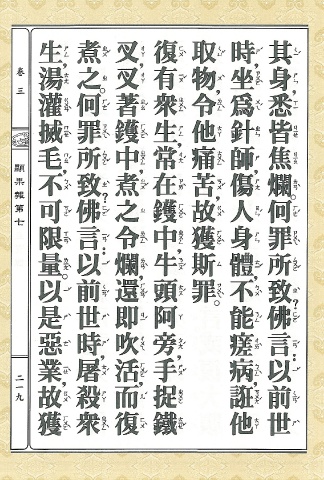 其身悉皆焦爛。何罪所致？佛言：以前世
時，坐為針師，傷人身體，不能瘥病，誑他
取物，令他痛苦，故獲斯罪。
復有眾生，常在鑊中，牛頭阿旁，手捉鐵
叉，叉著鑊中，煮之令爛，還即吹活，而復
煮之。何罪所致？佛言：以前世時，屠殺眾
生，湯灌搣毛，不可限量。以是惡業，故獲
卷三
顯果報第七
二一九